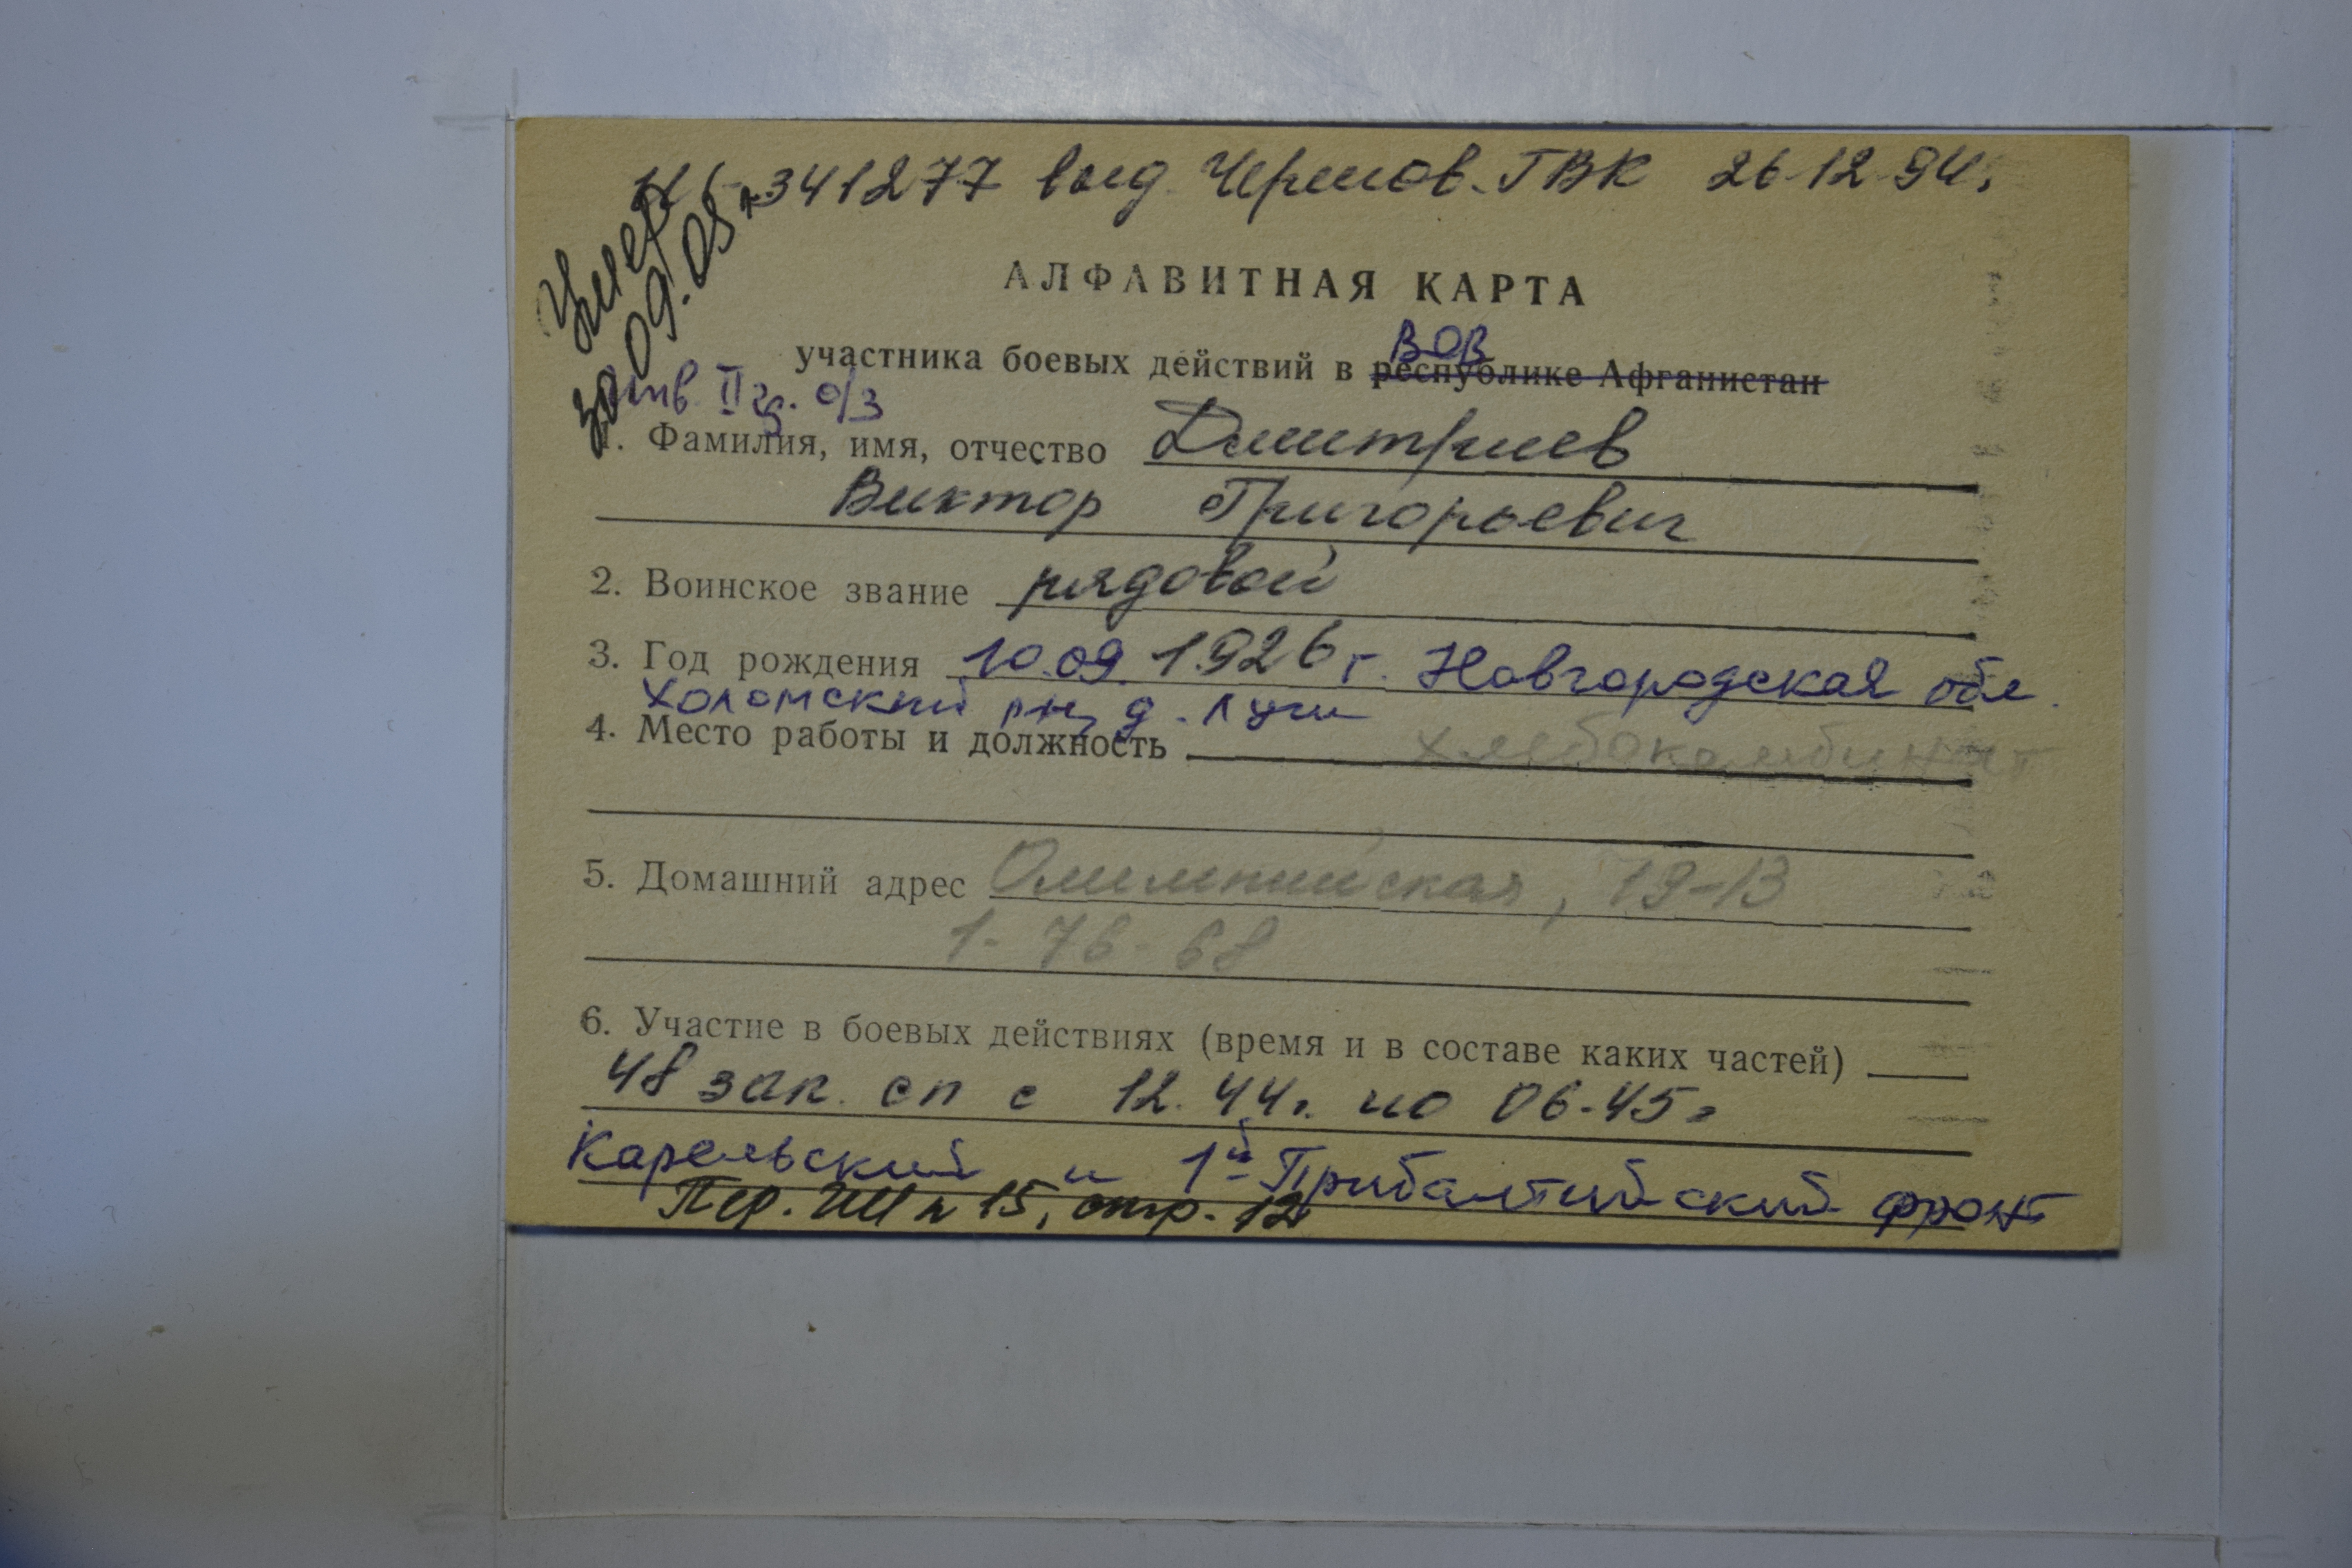 341277 выд. Черепов. ГВК 26.12.94г.
Умер
30.09.05г.
АЛФАВИТНАЯ КАРТА
ВОВ
участника боевых действий в республике Афганистан
инв II гр. о/з
1. Фамилия, имя, отчество Дмитриев
Виктор Григорьевич
2. Воинское звание рядовой
3. Год рождения 10.09.1926 г. Новгородская обл.
Холомский рн, д. Лучи
4. Место работы и должность хлебокомбинат
5. Домашний адрес Олимпийская, 19-13
1-76-68
6. Участие в боевых действиях (время и в составе каких частей)
48 зап. сп с 12.44г. по 06.45г
Карельский и 1й Прибалтийский фронт
15, стр. 12